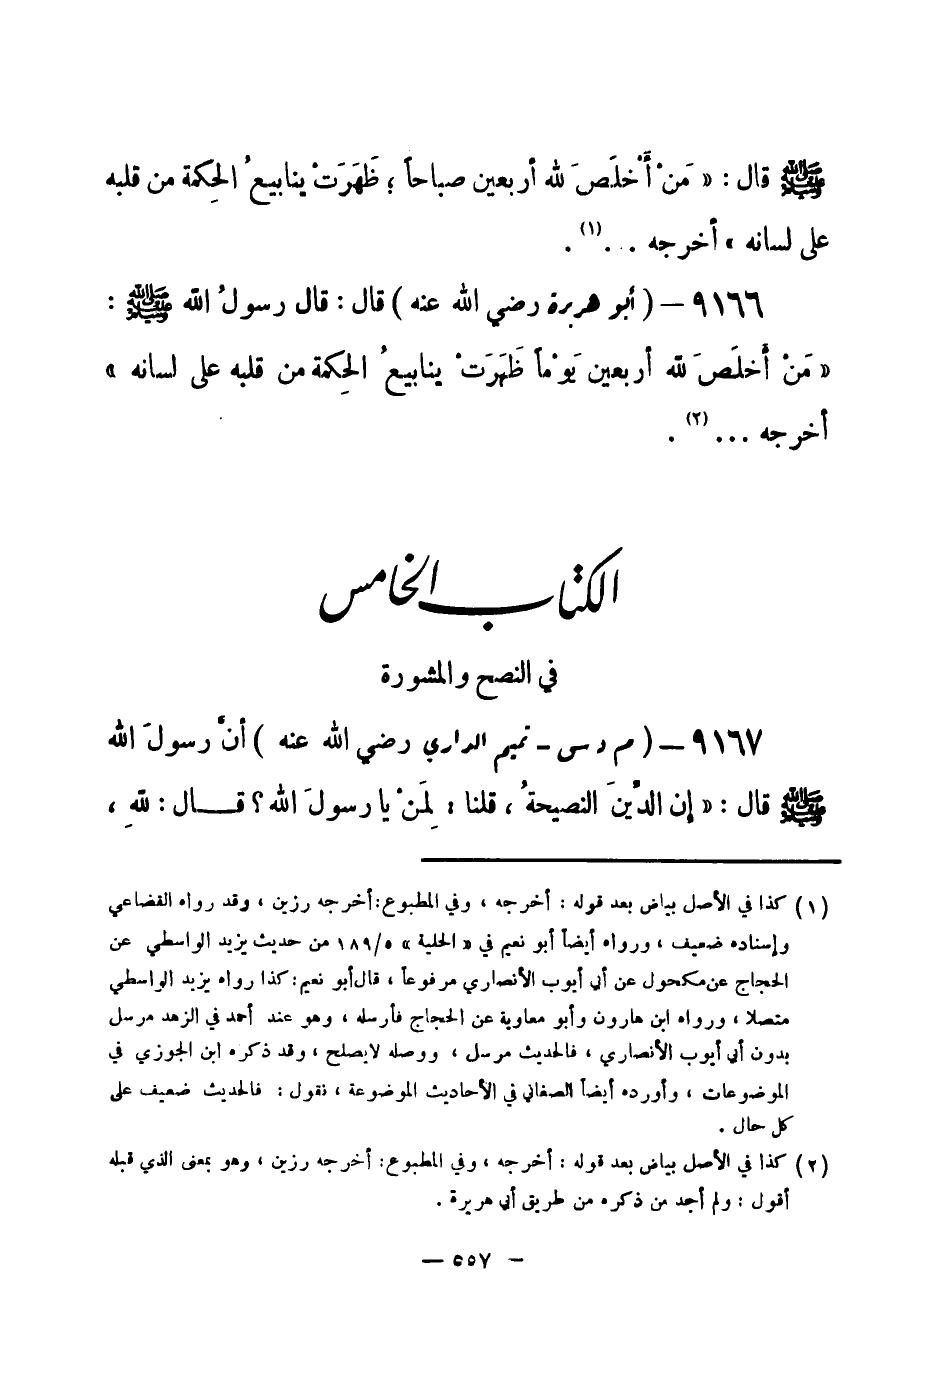 ﷺ قال : « مَنْ أَخلَصَ لله أربعين صباحاً ؛ ظَهَرَتْ ينابيعُ الحِكمة من قلبه
على لسانه » أخرجه . . .(١) .
٩١٦٦ – ( أبو هريرة رضي الله عنه ) قال : قال رسولُ الله ﷺ :
« مَنْ أَخلَصَ لله أربعين يَوْماً ظَهَرَتْ ينابيعُ الحِكمة من قلبه على لسانه »
أخرجه . . . (٢) .
الكتاب الخامس
في النصح والمشورة
٩١٦٧ – ( م د س - تميم الداري رضي الله عنه ) أنَّ رسولَ الله
ﷺ قال : « إن الدِّينَ النصيحةُ ، قلنا : لِمَنْ يا رسولَ الله ؟ قـــال : للهِ ،
(١) كذا في الأصل بياض بعد قوله : أخرجه ، وفي المطبوع : أخرجه رزين ، وقد رواه القضاعي
وإسناده ضعيف ، ورواه أيضاً أبو نعيم في « الحلية » ٥/١٨٩ من حديث يزيد الواسطي عن
الحجاج عن مكحول عن أبي أيوب الأنصاري مرفوعاً ، قال أبو نعيم : كذا رواه يزيد الواسطي
متصلا ، ورواه ابن هارون وأبو معاوية عن الحجاج فأرسله ، وهو عند أحمد في الزهد مرسل
بدون أبي أيوب الأنصاري ، فالحديث مرسل ، ووصله لايصلح ، وقد ذكره ابن الجوزي في
الموضوعات ، وأورده أيضاً الصغاني في الأحاديث الموضوعة ، نقول : فالحديث ضعيف على
كل حال .
(٢) كذا في الأصل بياض بعد قوله : أخرجه ، وفي المطبوع : أخرجه رزين ، وهو بمعنى الذي قبله
أقول : ولم أجد من ذكره من طريق أبي هريرة .
- ٥٥٧ -